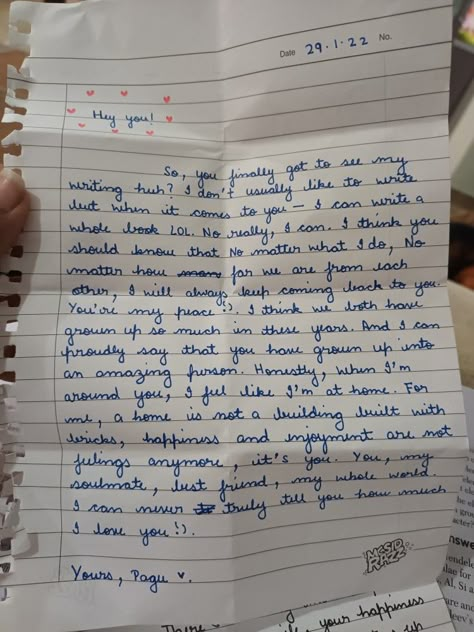 Date 29.1.22 No.
Hey you!
So, you finally got to see my
writing huh? I don't usually like to write
but when it comes to you – I can write a
whole book LOL. No really, I can. I think you
should know that No matter what I do, No
matter how far we are from each
other, I will always keep coming back to you.
You're my peace :). I think we both have
grown up so much in these years. And I can
proudly say that you have grown up into
an amazing person. Honestly, when I'm
around you, I feel like I'm at home. For
me, a home is not a building built with
bricks, happiness and enjoyment are not
feelings anymore, it's you. You, my
soulmate, best friend, my whole world.
I can never truly tell you how much
I love you :).
Yours, Pagu ♥.
There
your happiness